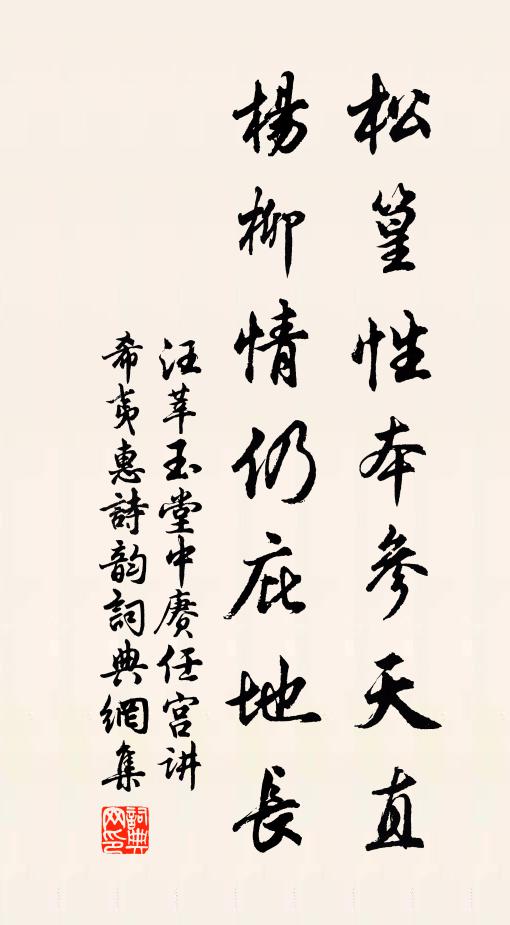 松篁性本參天直
楊柳情仍庇地長
汪莘玉堂中賡任宫讲
希夷惠詩韵詞典網集
詞典
网印